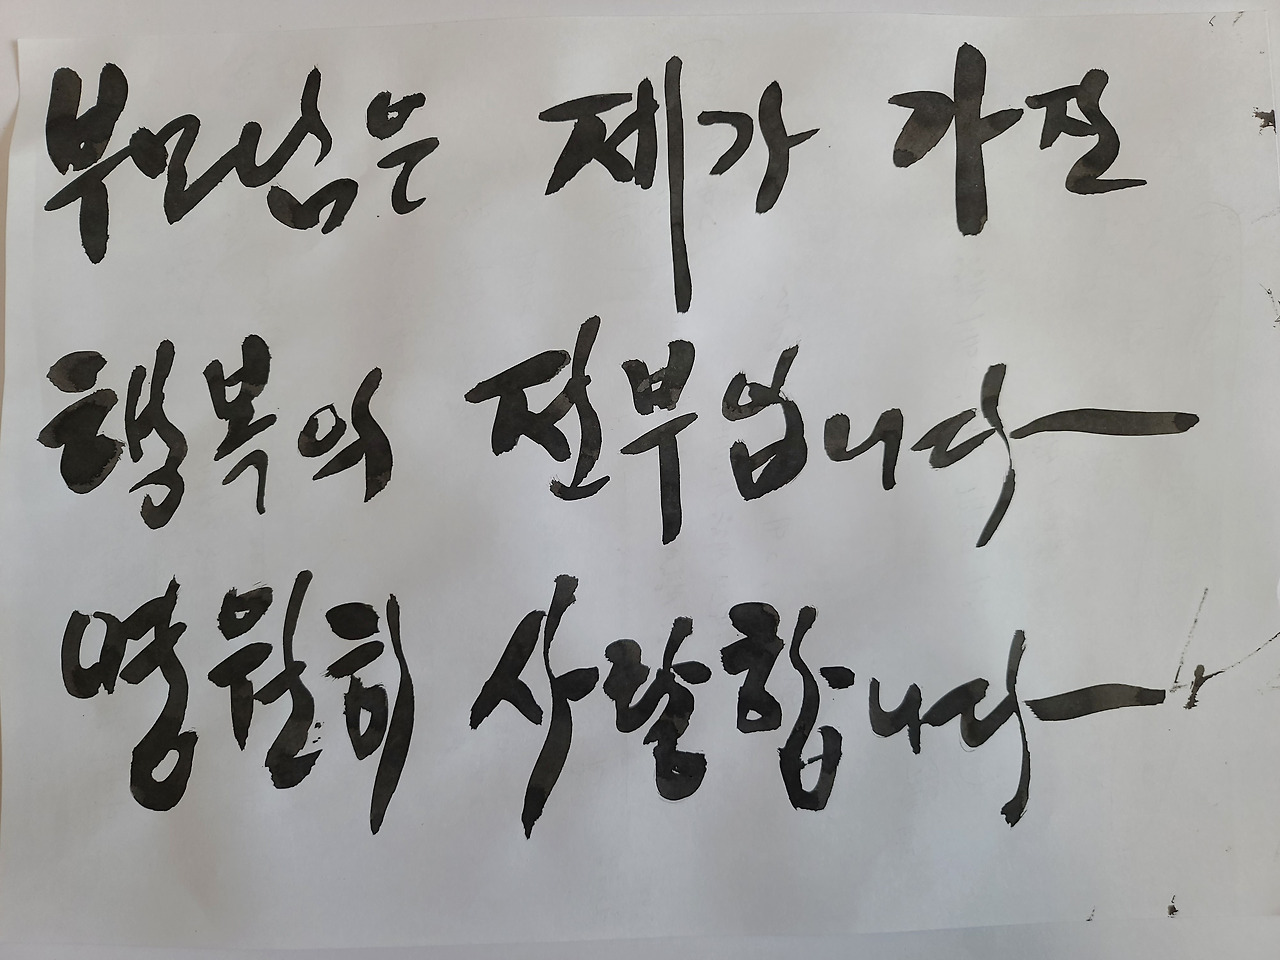 부모님은 제가 가진
행복의 전부입니다
영원히 사랑합니다